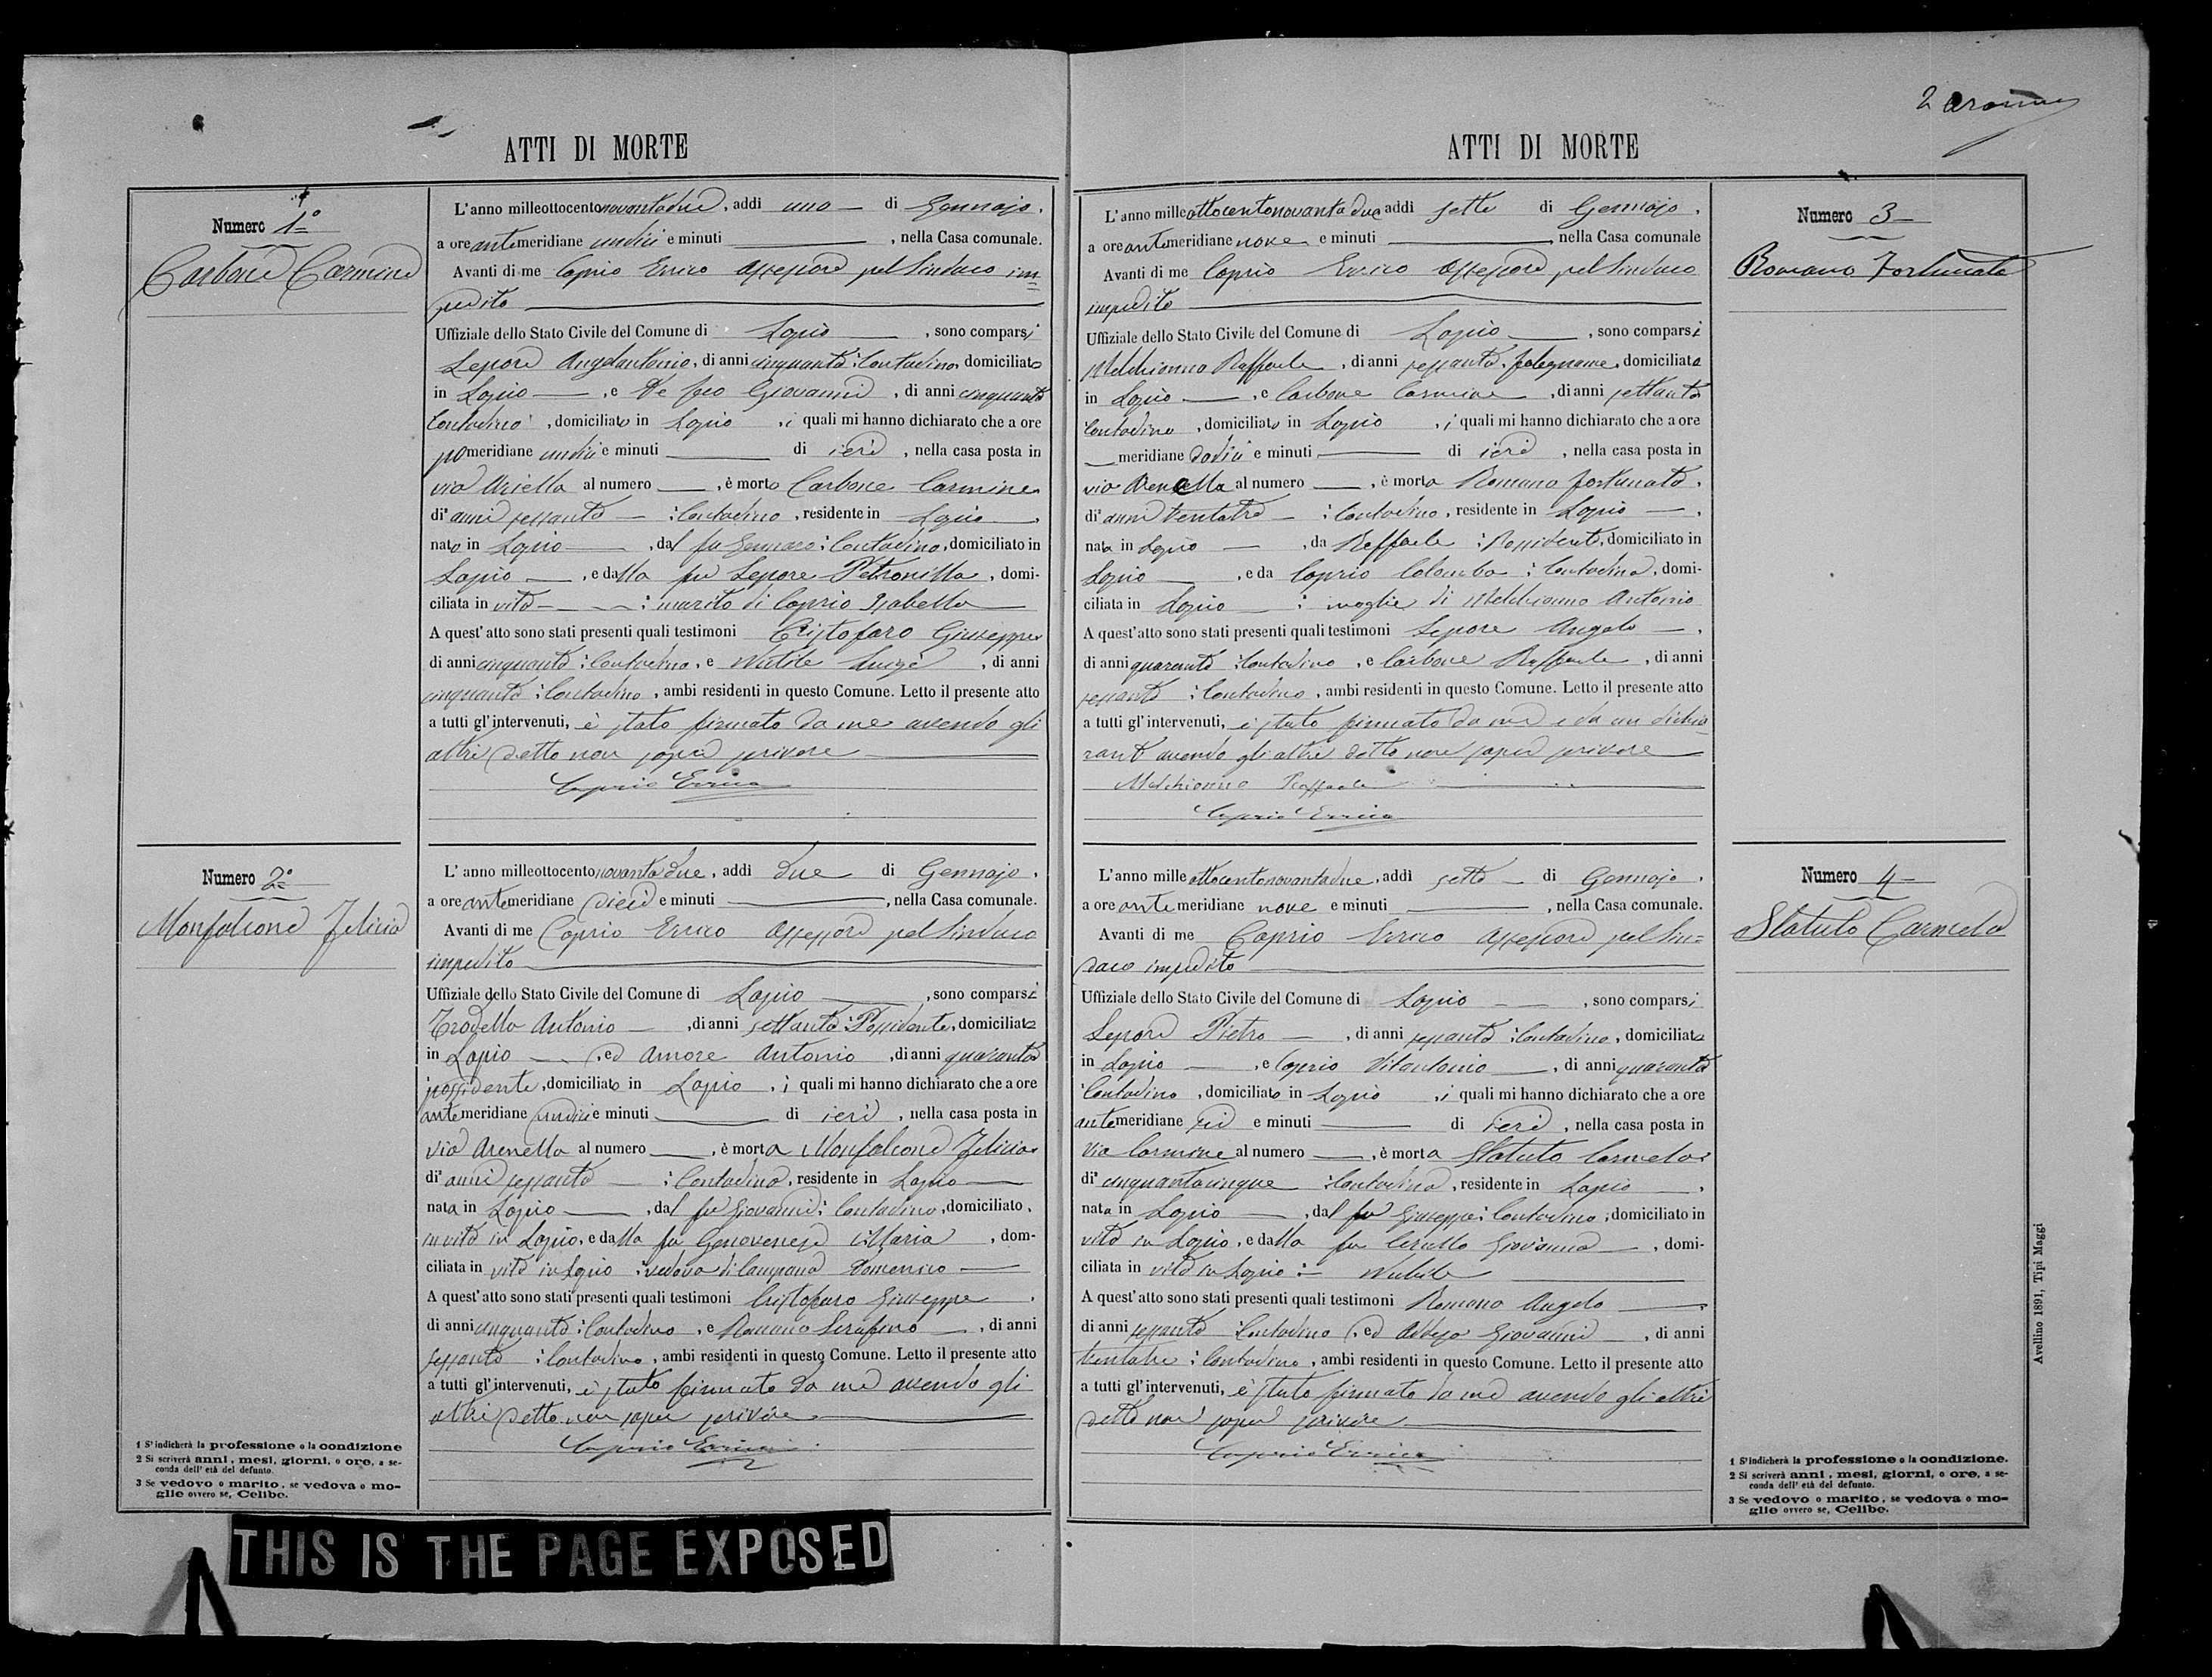 ATTI DI MORTE
Numero 1°
Carbone Carmine
L'anno milleottocentonovantadue, addì uno di Gennajo,
a ore antemeridiane undici e minuti , nella Casa comunale.
Avanti di me Caprio Errico Assessore pel Sindaco im=
pedito
Uffiziale dello Stato Civile del Comune di Lapio , sono comparsi
Lepore Angelantonio, di anni cinquanta : Contadino, domiciliato
in Lapio , e De feo Giovanni , di anni cinquanta
Contadino , domiciliato in Lapio , i quali mi hanno dichiarato che a ore
pomeridiane undici e minuti di ieri , nella casa posta in
via Ariella al numero , è morto Carbone Carmine
di anni sessanta : Contadino , residente in Lapio ,
nato in Lapio , dal fu Gennaro : Contadino, domiciliato in
Lapio , e dalla fu Lepore Petronilla , domi-
ciliata in vita : marito di Caprio Isabella
A quest'atto sono stati presenti quali testimoni Cristofaro Giuseppe
di anni cinquanta : Contadino, e Nutile Luigi , di anni
cinquanta : Contadino , ambi residenti in questo Comune. Letto il presente atto
a tutti gl'intervenuti, è stato firmato da me avendo gli
altri detto non saper scrivere
Caprio Errico
Numero 2°
Monfalcone Felicia
L'anno milleottocentonovantadue, addì due di Gennajo,
a ore antemeridiane dieci e minuti , nella Casa comunale.
Avanti di me Caprio Errico Assessore pel Sindaco
impedito
Uffiziale dello Stato Civile del Comune di Lapio , sono comparsi
Trodella Antonio , di anni settanta : Possidente, domiciliato
in Lapio , ed Amore Antonio , di anni quaranta
possidente, domiciliato in Lapio , i quali mi hanno dichiarato che a ore
antemeridiane undici e minuti di ieri , nella casa posta in
via Arenella al numero , è morta Monfalcone Felicia
di anni sessanta : Contadina, residente in Lapio
nata in Lapio , dal fu Giovanni : Contadino, domiciliato
in vita in Lapio, e dalla fu Genovese Maria , dom-
ciliata in vita in Lapio : vedova di Campana Domenico
A quest'atto sono stati presenti quali testimoni Cristofaro Giuseppe ,
di anni cinquanta : Contadino , e Romano Serafino , di anni
sessanta : Contadino , ambi residenti in questo Comune. Letto il presente atto
a tutti gl'intervenuti, è stato firmato da me avendo gli
altri detto non saper scrivere
Caprio Errico
1 S'indicherà la professione o la condizione
2 Si scriverà anni, mesi, giorni, o ore, a se-
conda dell'età del defunto.
3 Se vedovo o marito, se vedova o mo-
glie ovvero se, Celibe.
THIS IS THE PAGE EXPOSED
2
ATTI DI MORTE
Numero 3
Romano Fortunata
L'anno milleottocentonovantadue addì sette di Gennajo,
a ore antemeridiane nove e minuti nella Casa comunale
Avanti di me Caprio Errico Assessore pel Sindaco
impedito
Uffiziale dello Stato Civile del Comune di Lapio , sono comparsi
Melchionno Raffaele , di anni sessanta, falegname, domiciliato
in Lapio , e Carbone Carmine , di anni settanta
Contadino , domiciliato in Lapio , i quali mi hanno dichiarato che a ore
meridiane dodici e minuti di ieri , nella casa posta in
via Arenella al numero , è morta Romano fortunata,
di anni trentatre : Contadina , residente in Lapio ,
nata in Lapio , da Raffaele : Possidente, domiciliato in
Lapio , e da Caprio Colomba : Contadina , domi-
ciliata in Lapio : moglie di Melchionno Antonio
A quest'atto sono stati presenti quali testimoni Lepore Angelo ,
di anni quaranta : Contadino , e Carbone Raffaele , di anni
sessanta : Contadino , ambi residenti in questo Comune. Letto il presente atto
a tutti gl'intervenuti, è stato firmato da me e da un dichia
rante avendo gli altri detto non saper scrivere
Melchionno Raffaele
Caprio Errico
Numero 4
Statuto Carmela
L'anno milleottocentonovantadue, addì sette di Gennajo,
a ore antemeridiane nove e minuti , nella Casa comunale.
Avanti di me Caprio Errico Assessore pel Sin=
daco impedito
Uffiziale dello Stato Civile del Comune di Lapio , sono comparsi
Lepore Pietro , di anni sessanta : Contadino, domiciliato
in Lapio , e Caprio Vitantonio , di anni quaranta
Contadino , domiciliato in Lapio , i quali mi hanno dichiarato che a ore
antemeridiane sei e minuti di ieri , nella casa posta in
Via Carmine al numero , è morta Statuto Carmela
di cinquantacinque : Contadina , residente in Lapio ,
nata in Lapio , dal fu Giuseppe : Contadino , domiciliato in
vita in Lapio , e dalla fu Cerullo Giovanna , domi-
ciliata in vita in Lapio : Nubile
A quest'atto sono stati presenti quali testimoni Romano Angelo
di anni sessanta : Contadino , ed Giovanni , di anni
trentatre : Contadino , ambi residenti in questo Comune. Letto il presente atto
a tutti gl'intervenuti, è stato firmato da me avendo gli altri
detto non saper scrivere
Caprio Errico
1 S'indicherà la professione o la condizione.
2 Si scriverà anni, mesi, giorni, o ore, a se-
conda dell'età del defunto.
3 Se vedovo o marito, se vedova o mo-
glie ovvero se, Celibe.
Avellino 1891, Tipi Maggi